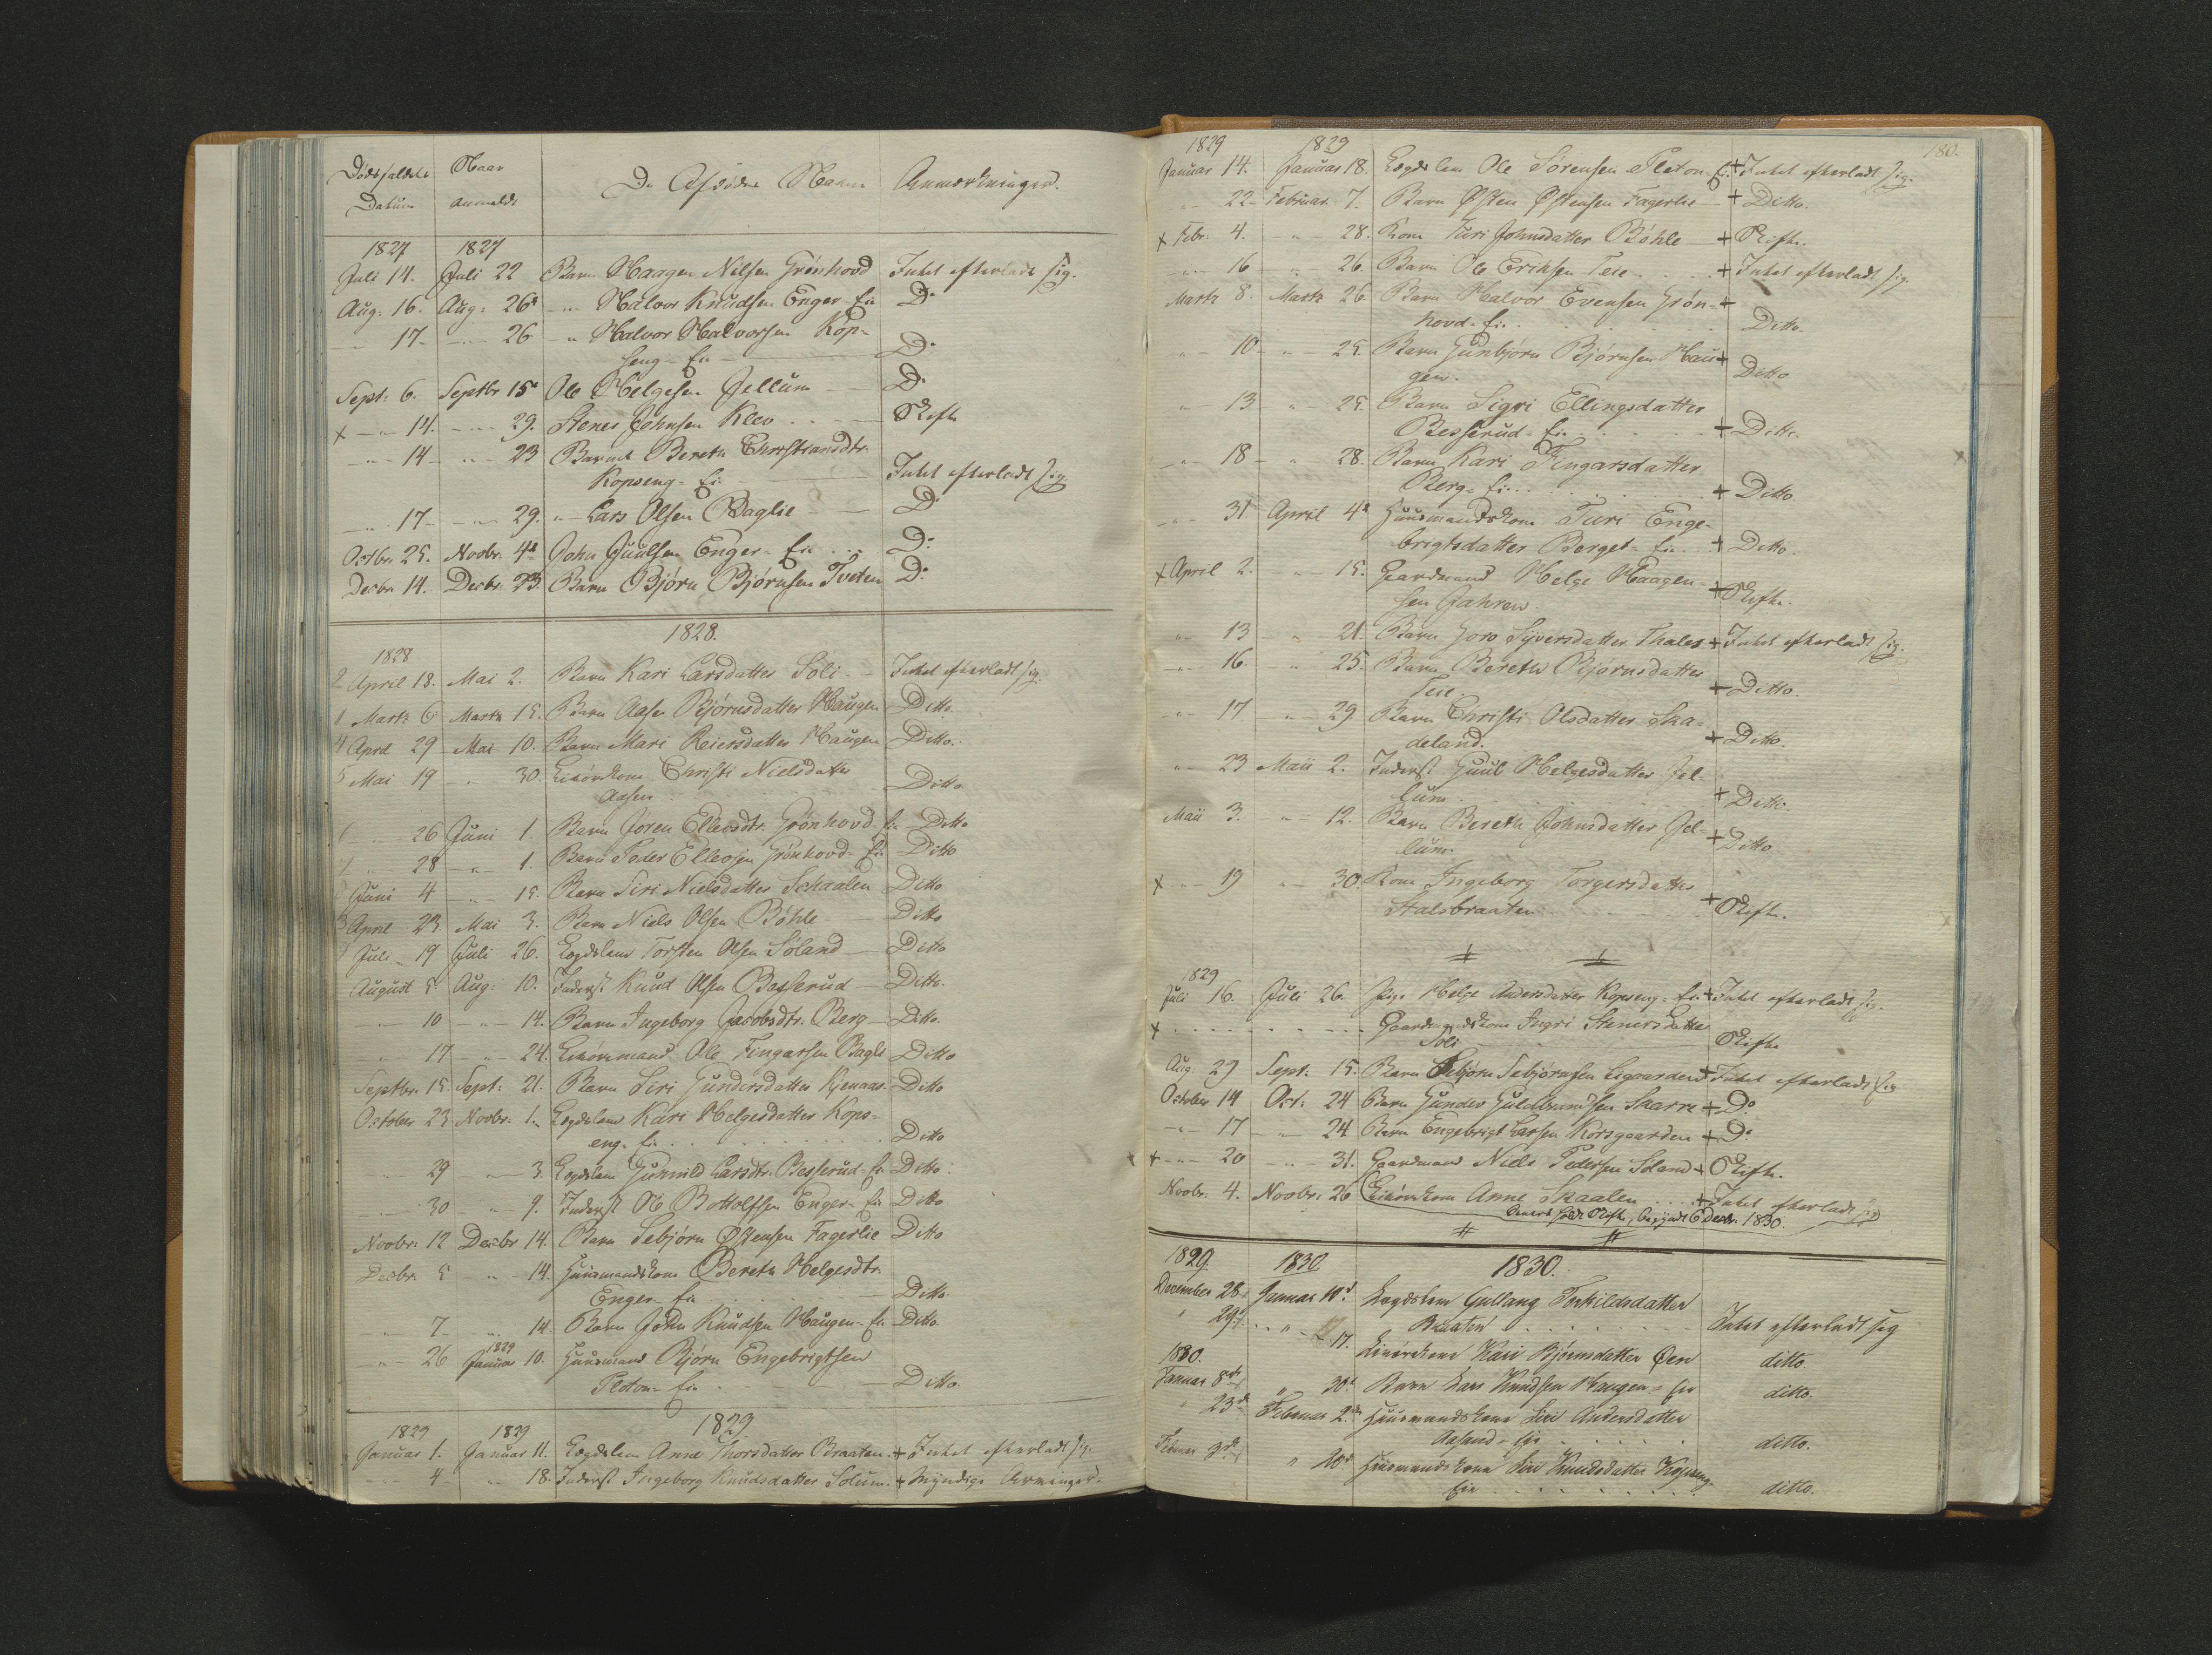 Dødsfaldets Datum | Naar anmeldt | De Afdødes Navne | Anmærkninger.
1827 | 1827
Juli 14. | Juli 22 | Barn Haagen Nilsen Grønhovd | Intet efterladt sig.
Aug. 16. | Aug: 26d | -"- Halvor Knudsen Enger-Eie | Do
-"- 17- | -"- 26 | -"- Halvor Halvorsen Kop-
seng-Eie | Do
Sept: 6. | Septbr 15d | Ole Helgesen Jellum | Do
x -"- 14. | -"- 29. | Stener Johnsen Klev | Skifte
-"- 14- | -"- 23 | Barnet Berethe Christiansdtr.
Kopseng-Eie | Intet efterladt sig
-"- 17- | -"- 29. | -"- Lars Olsen Baglie | Do
Octbr. 25. | Novbr. 4d | John Juulsen Enger-Eie | Do
Decbr. 14. | Decbr. 23. | Barn Bjørn Bjørnsen Tveten | Do
1828.
1828
2 April 18. | Mai 2. | Barn Kari Larsdatter Soli | Intet efterladt sig.
1 Marts 6 | Marts 15. | Barn Aase Bjørnsdatter Haugen | Ditto
4 April 29 | Mai 10. | Barn Mari Reiersdatter Haugen | Ditto.
5 Mai 19 | -"- 30. | Leiørkone Christi Nielsdatter
Aasen | Ditto
6 -"- 26 | Juni 1. | Barn Joren Ellevsdtr. Grønhovd-Eie | Ditto
7 -"- 28 | -"- 1. | Barn Peder Ellevsen Grønhovd-Eie | Ditto
Juni 4 | -"- 15. | Barn Siri Nielsdatter Schaalen | Ditto
3 April 23 | Mai 3. | Barn Niels Olsen Bøhle | Ditto
Juli 19 | Juli 26. | Lægdslem Torsten Olsen Søland | Ditto
August 5. | Aug: 10. | Inderst Knud Olsen Besserud | Ditto.
-"- 10 | -"- 14. | Barn Ingeborg Jacobsdtr. Berg | Ditto.
-"- 17 | -"- 24. | Leiørmand Ole Fingarsen Bagli | Ditto
Septbr. 15. | Sept: 21. | Barn Siri Gundersdatter Kjenaas | Ditto
October 23 | Novbr. 1. | Lægdslem Kari Helgesdatter Kops-
eng-Eie | Ditto
-"- 29 | -"- 3. | Lægdslem Gunnild Larsdtr. Besserud-Eie | Ditto.
-"- 30 | -"- 9. | Inderst Ole Bottolfsen Enger-Eie | Ditto
Novbr: 12 | Decbr 14. | Barn Sebjørn Østensen Fagerlie | Ditto
Decbr. 5 | -"- 14. | Huusmandskone Berethe Helgesdtr.
Enger-Eie | Ditto
-"- 7- | -"- 14. | Barn John Knudsen Haugen-Eie | Ditto
-"- 26 | 1829 Januar 10. | Huusmand Bjørn Engebrigtsen
Ploton-Eie | Ditto.
1829.
1829 | 1829
Januar 1. | Januar 11. | Lægdslem Anne Thorsdatter Braaten | + Intet efterladt sig.
-"- 4- | -"- 18. | Inderst Ingeborg Knudsdatter Solum | + Myndige Arvinger.
180.
1829 | 1829
Januar 14. | Januar 18. | Lægdslem Ole Sørensen Ploton-Eie | + Intet efterladt sig.
-"- 22- | Februar 7. | Barn Østen Østensen Fagerlie | + Ditto.
x Febr: 4. | -"- 28. | Kone Turi Johnsdatter Bøhle | + Skifte.
-"- 16 | -"- 26. | Barn Ole Eriksen Teie | + Intet efterladt sig.
Marts 8. | Marts 26. | Barn Halvor Evensen Grøn-
hovd-Eie | + Ditto.
-"- 10- | -"- 25. | Barn Gunbjørn Bjørnsen Hau-
gen. | + Ditto
-"- 13 | -"- 25. | Barn Sigri Ellingsdatter
Besserud-Eie | + Ditto.
-"- 18 | -"- 28. | Barn Kari Fingarsdatter
Berg-Eie | + Ditto
-"- 31 | April 4d | Huusmandskone Turi Enge-
brigtsdatter Berget-Eie | + Ditto.
x April 2. | -"- 15. | Gaardmand Helge Haagen-
sen Jahren | + Skifte.
-"- 13 | -"- 21. | Barn Goro Syversdatter Thales | + Intet efterladt sig.
-"- 16. | -"- 25. | Barn Berethe Bjørnsdatter
Teie. | + Ditto.
-"- 17 | -"- 29 | Barn Christi Olsdatter Ska-
deland. | + Ditto.
-"- 23 | Maii 2. | Inderst Guul Helgesdatter Jel-
lum | + Ditto.
Maii 3. | -"- 12. | Barn Berethe Johnsdatter Jel-
lum. | + Ditto
x -"- 19 | -"- 30. | Kone Ingeborg Torgersdatter
Stalsbraaten | + Skifte.
1829
Juli 16. | Juli 26. | Pige Helge Andersdatter Kopseng-Eie | + Intet efterladt sig.
x | Gaardmandskone Ingri Stenersdatter
Soli | Skifte
Aug. 29 | Sept: 15. | Barn Sebjørn Sebjørnsen Liegaarden | + Intet efterladt sig
October 14 | Oct: 24 | Barn Gunder Guldbrandsen Skarre | + Do
-"- 17 | -"- 24 | Barn Engebrigt Larsen Korsgaarden | + Do
x -"- 20 | -"- 31. | Gaardmand Niels Pedersen Soland | + Skifte.
Novbr. 4. | Novbr: 26 | Leiørkone Anne Skaalen | + Intet efterladt sig
holdt Skifte, begyndt 6 Decbr. 1830.
1829. | 1830 | 1830.
December 28 | Januar 10d | Lægdslem Gullaug Torkildsdatter
Braaten | Intet efterladt sig
" 29 | " 17. | Leiørkone Kari Bjørnsdatter Øen | ditto.
1830.
Januar 8de | " 30d | Barn Lars Knudsen Haugen-Eie | ditto.
" 23de | Februar 2den | Huusmandskone Siri Andersdatter
Aasand-Eie | ditto.
Februar 3de | " 20d | Huusmandskone Siri Knudsdatter Kopseng-
Eie | ditto.